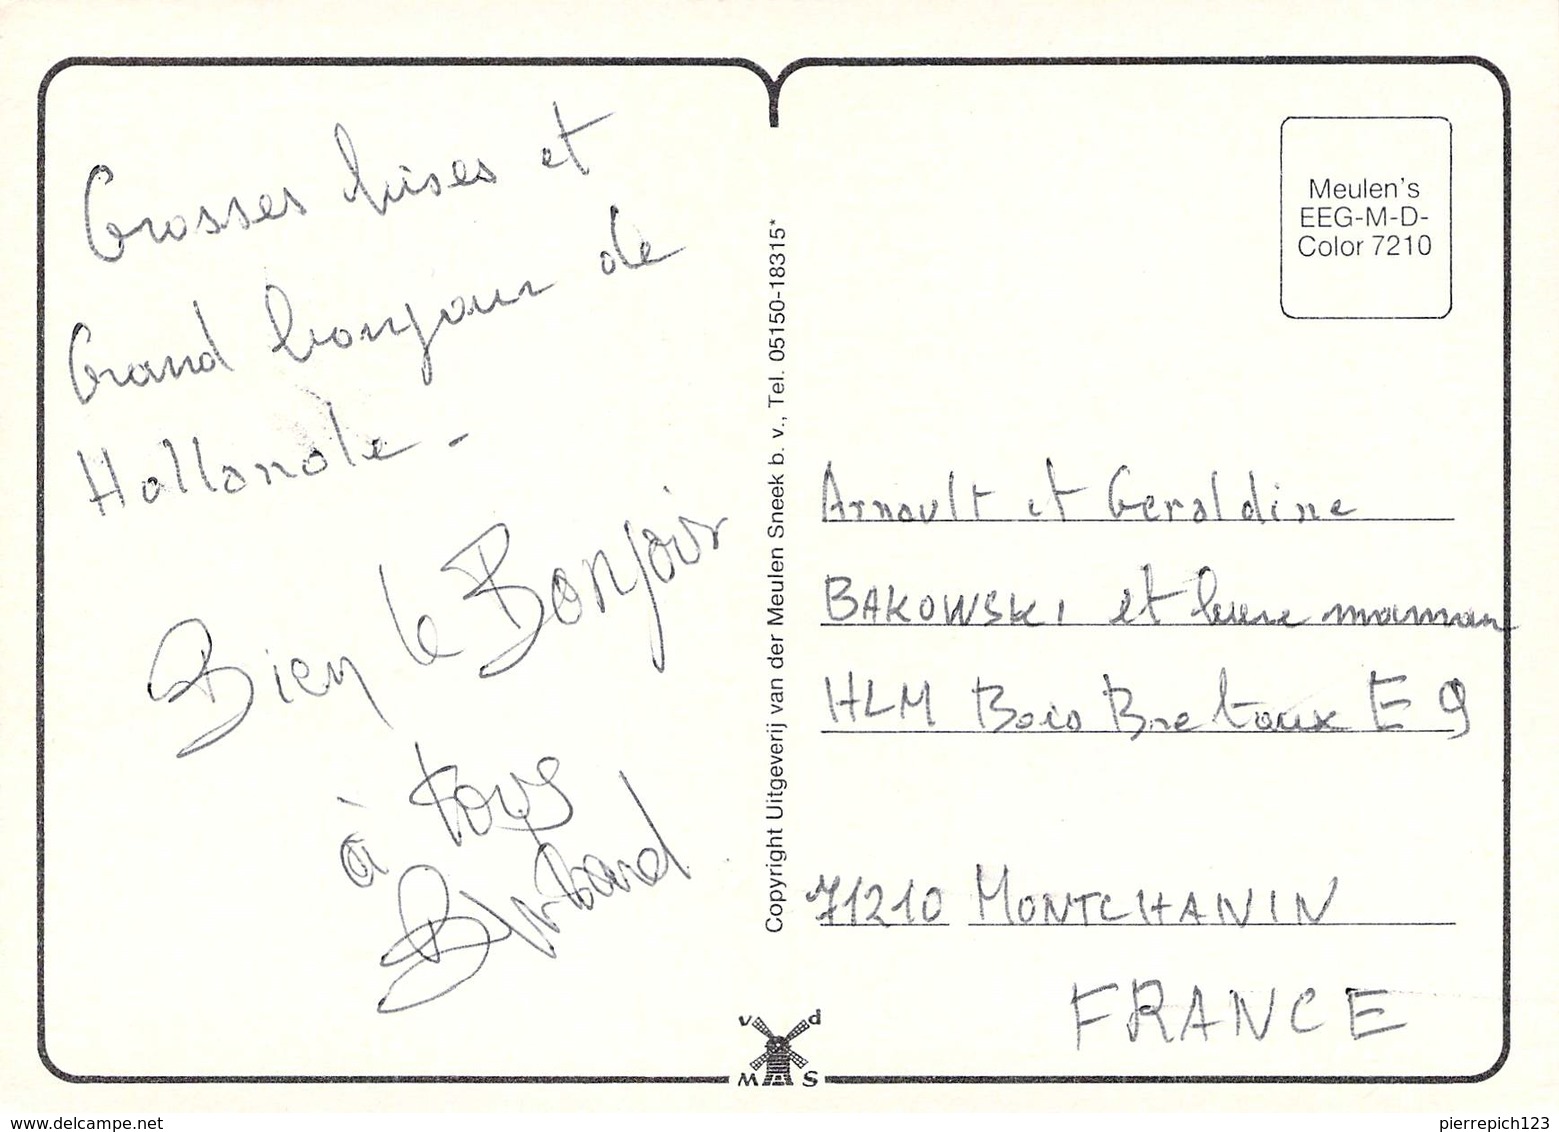 Grosses bises et
Grand bonjour de
Hollande -
Bien le Bonjour
à tous
Bertrand
Copyright Uitgeverij van der Meulen Sneek b. v., Tel. 05150-18315*
Meulen's
EEG-M-D-
Color 7210
Arnault et Geraldine
BAKOWSKI et leur maman
HLM Bois Bretoux E 9
71210 MONTCHANIN
FRANCE
v d
M S
pierrepich123